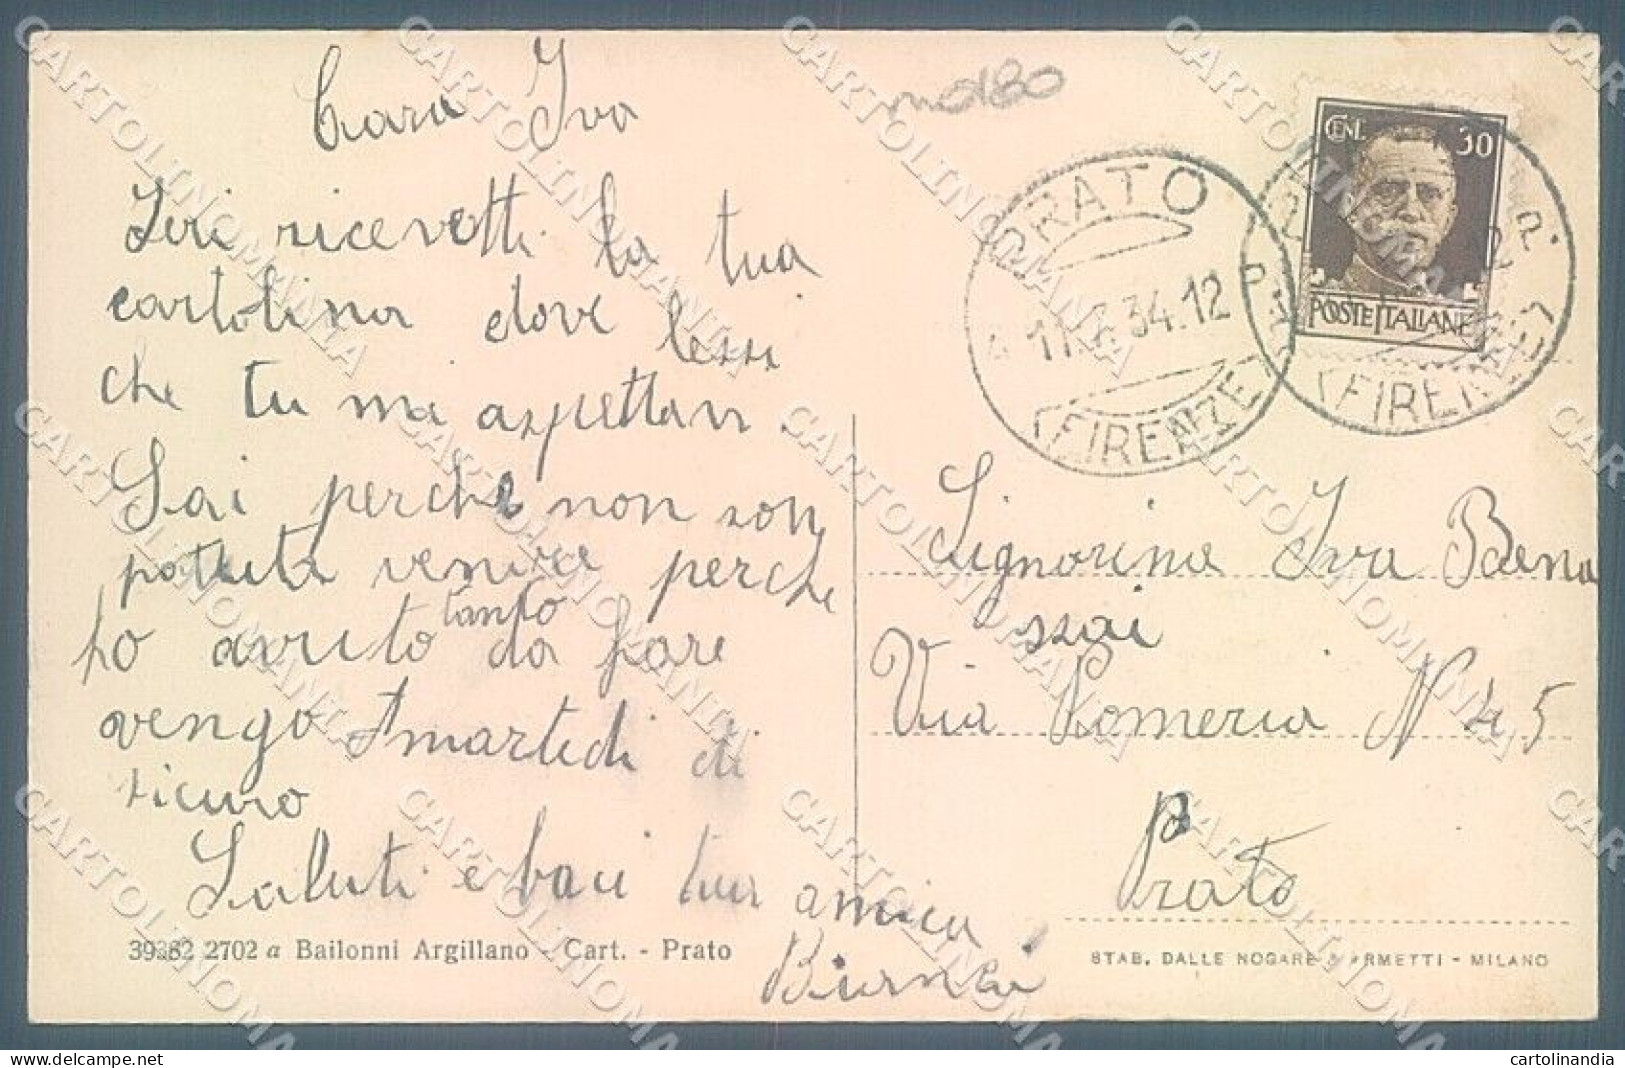 Cara Iva
Ieri ricevetti la tua
cartolina dove lessi
che tu mi aspettavi.
Sai perche non son
potuta venire perche
ho avuto tanto da fare
vengo martedi di
sicuro
Saluti e baci tua amica
39382 2702 a Bailonni Argillano - Cart. - Prato
mo180
PRATO
11. 34.12
(FIRENZE)
CENT. 30
POSTE ITALIANE
(FIRENZE)
Signorina Iva Bena
ssai
Via Pomeria N 45
Prato
STAB. DALLE NOGARE ARMETTI - MILANO
CARTOLINOMANIA
cartolinandia